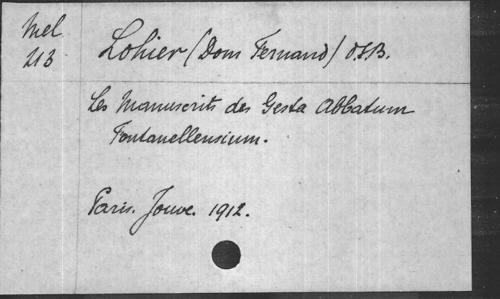 Mel
213
Lohier (Dom Fernand) O.S.B.
Les Manuscrits des Gesta Abbatum
Fontanellensium.
Paris. Jouve. 1912.